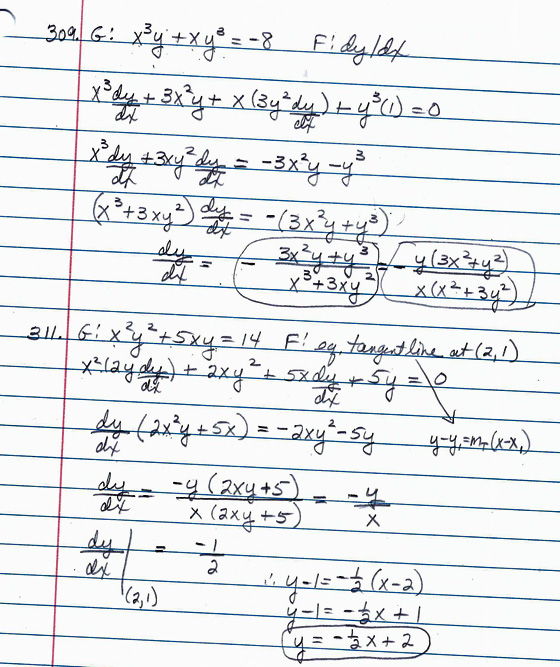 309. G: x³y + xy³ = -8 F: dy/dx
x³ dy/dx + 3x²y + x(3y² dy/dx) + y³(1) = 0
x³ dy/dx + 3xy² dy/dx = -3x²y - y³
(x³ + 3xy²) dy/dx = -(3x²y + y³)
dy/dx = - (3x²y + y³)/(x³ + 3xy²) = - y(3x² + y²)/x(x² + 3y²)
311. G: x²y² + 5xy = 14 F: eq. tangent line at (2,1)
x²(2y dy/dx) + 2xy² + 5x dy/dx + 5y = 0
dy/dx (2x²y + 5x) = -2xy² - 5y y-y₁=m_T(x-x₁)
dy/dx = -y(2xy+5)/x(2xy+5) = -y/x
dy/dx |(2,1) = -1/2
∴ y-1 = -½(x-2)
y-1 = -½x + 1
y = -½x + 2